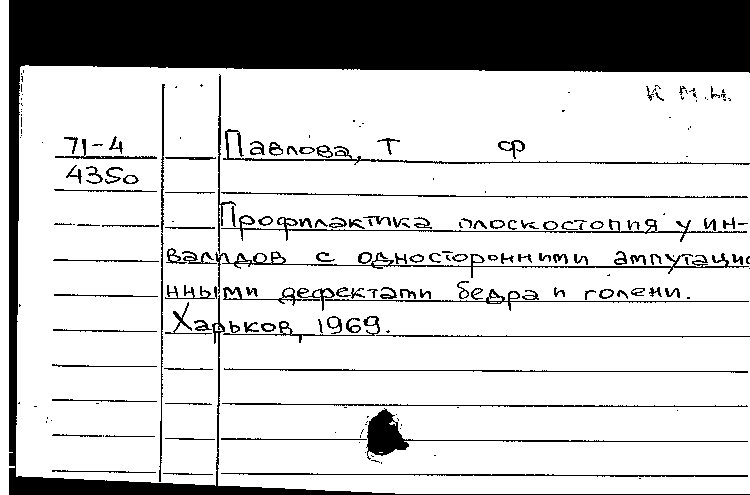 К М.Н.
71-4 Павлова, Т ф
4350
Профилактика плоскостопия у ин-
валидов с односторонними ампутацио
нными дефектами бедра и голени.
Харьков, 1969.